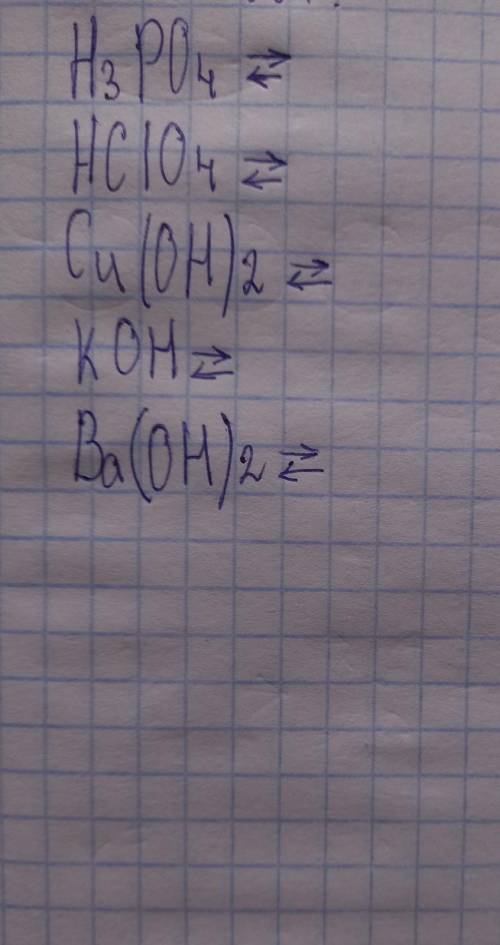 H₃PO₄ ⇄
HClO₄ ⇄
Cu(OH)₂ ⇄
KOH ⇄
Ba(OH)₂ ⇄